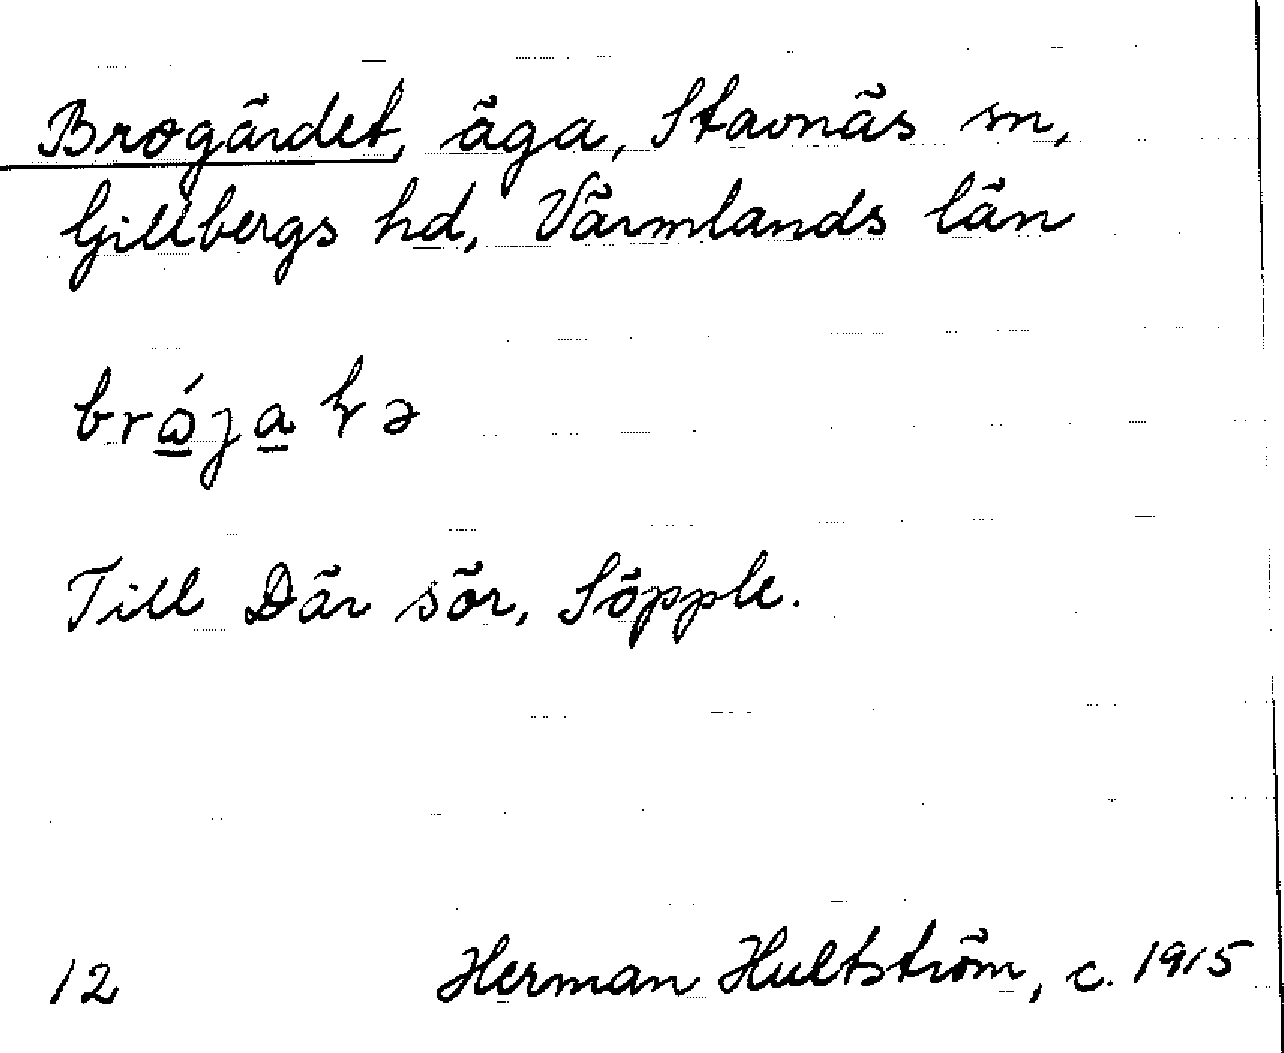 Brogärdet, äga, Stavnäs sn,
Gillbergs hd, Värmlands län
Till Där sör, Söpple.
12 Herman Hultström, c. 1915